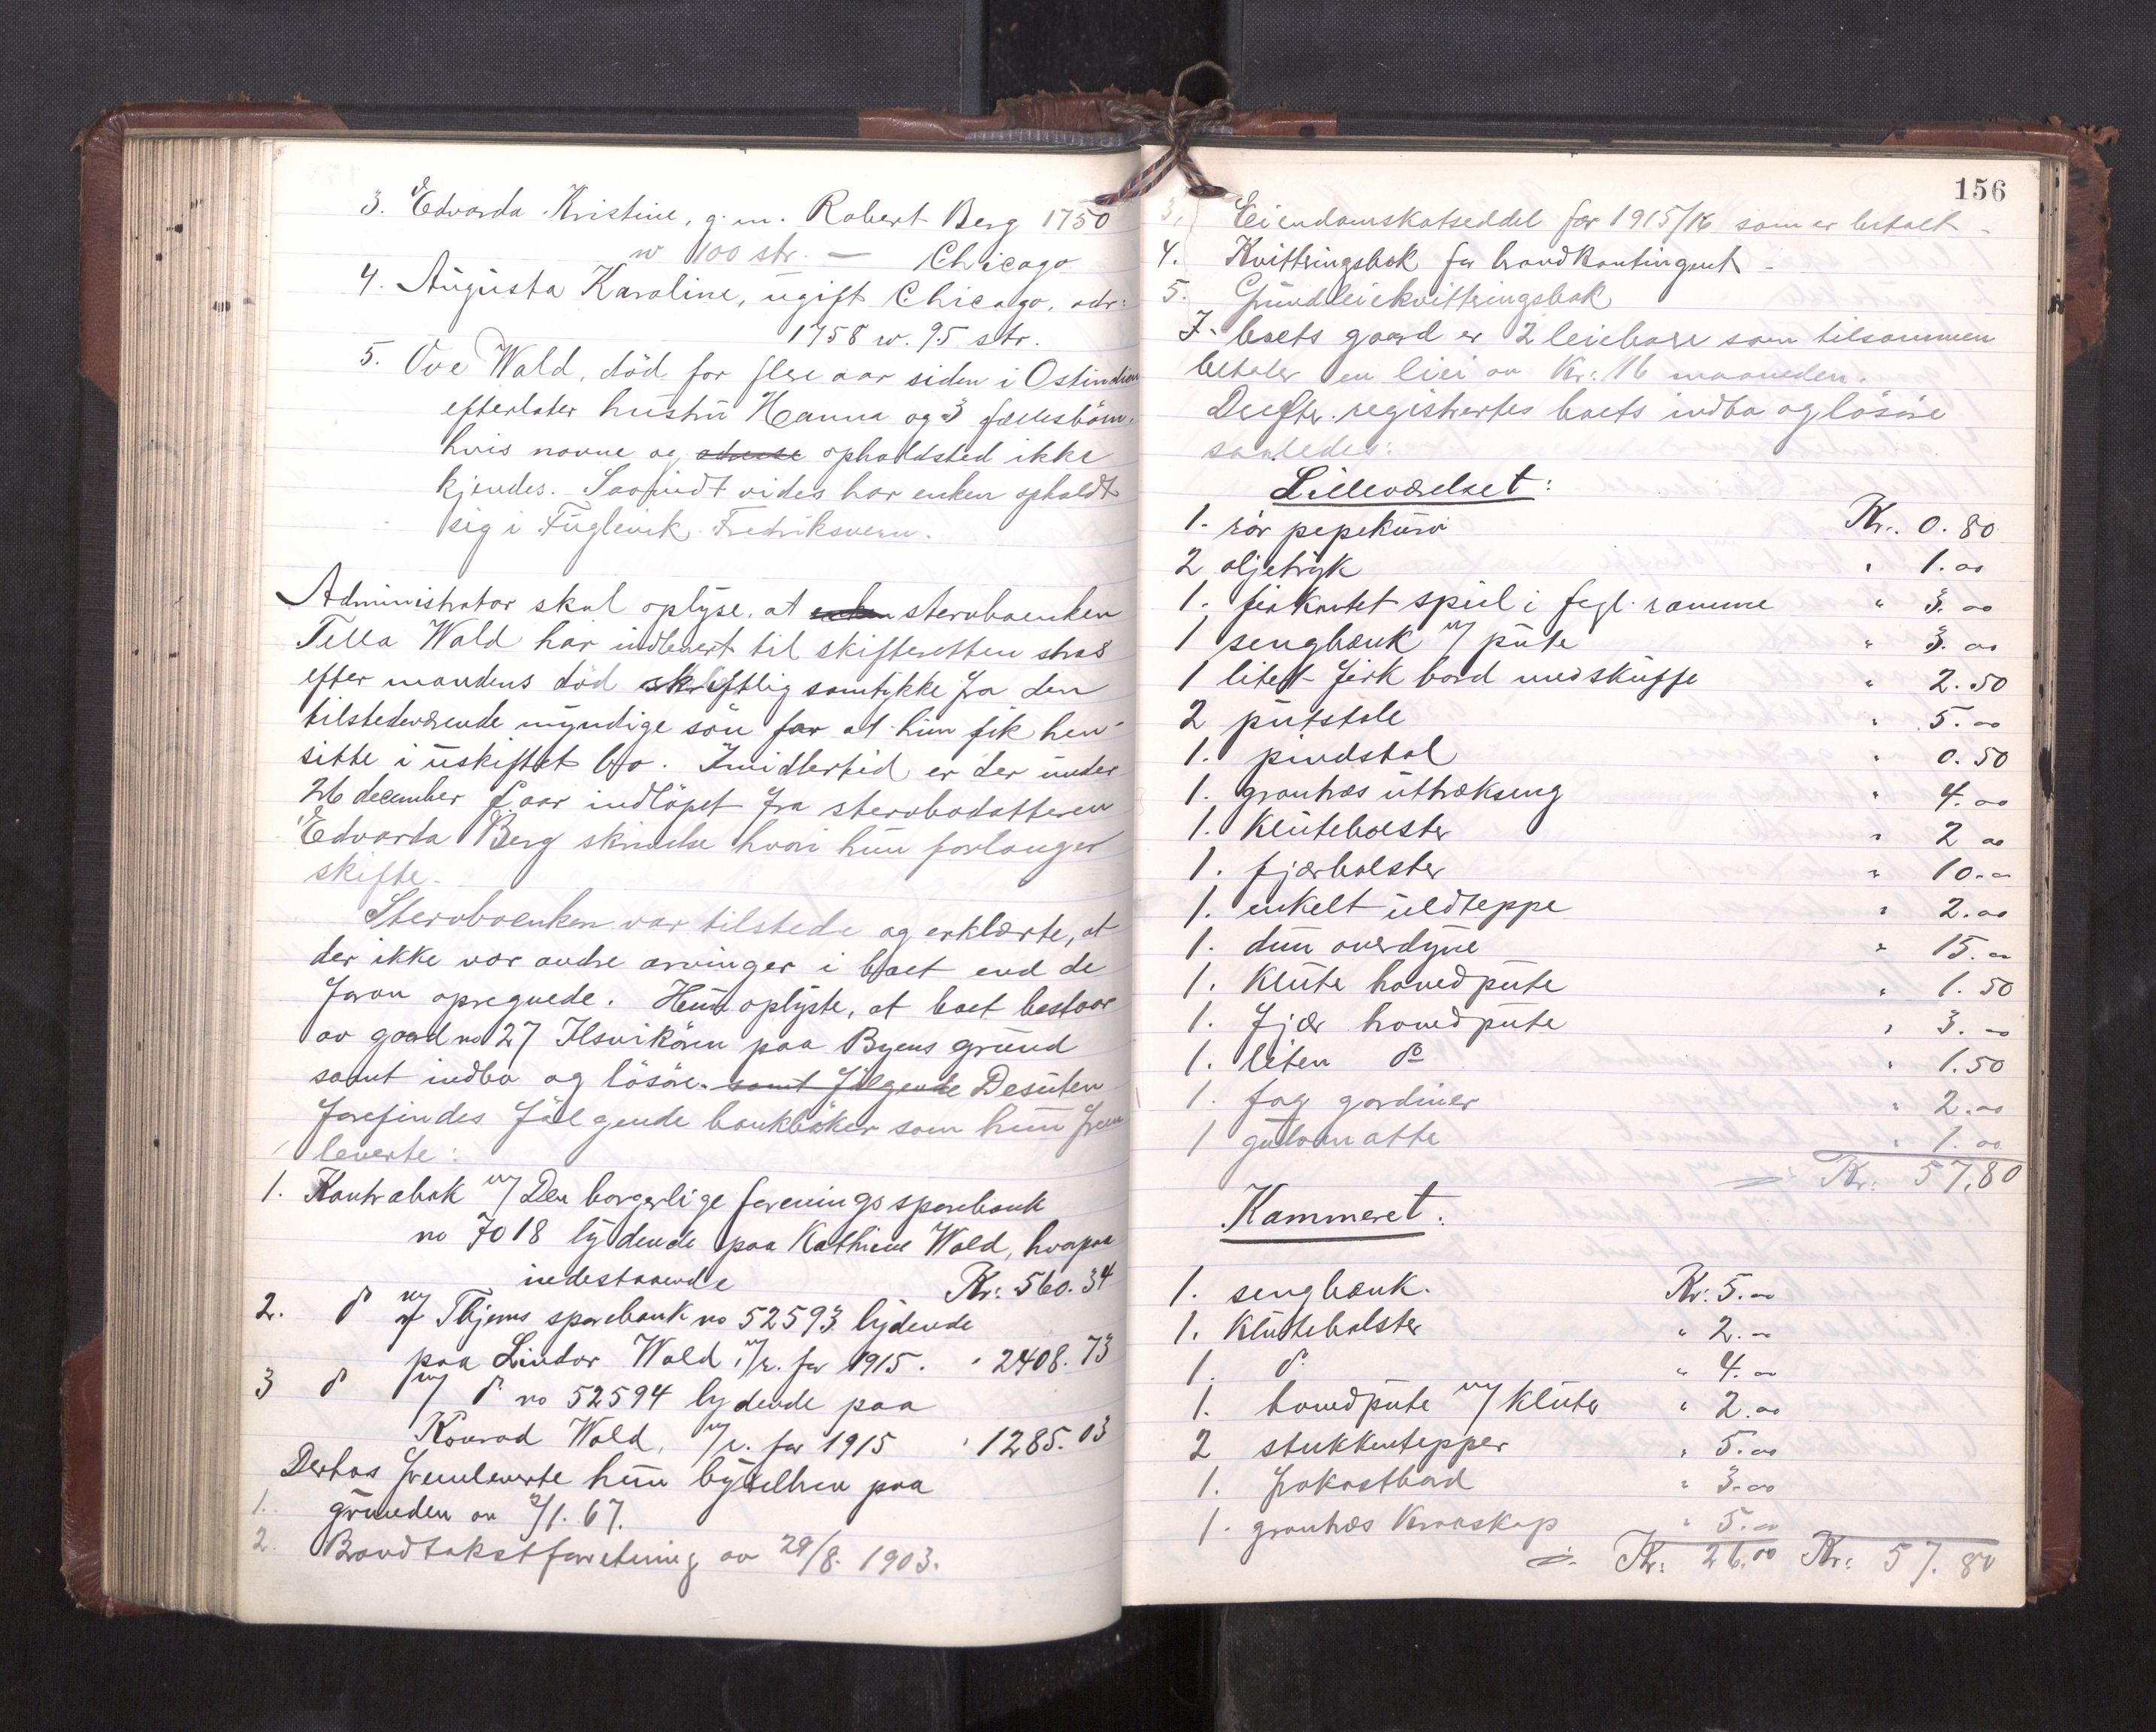 3. Edvarda Kristine, g. m. Robert Berg 1750
w 100 str. — Chicago
4. Augusta Karoline, ugift Chicago, adr:
1758 w. 95 str.
5. Ove Wald, död for flere aar siden i Ostindien
efterlater hustru Hanna og 3 fællesbörn,
hvis navne og adresse opholdsted ikke
kjendes. Saavidt vides har enken opholdt
sig i Fuglevik Fredriksvern.
Administrator skal oplyse, at enken stervboenken
Tella Wald har indlevert til skifteretten straks
efter mandens död skriftlig samtykke fra den
tilstedeværende myndige sön for at hun fik hen-
sitte i uskiftet bo. Imidlertid er der under
26 december f. aar indlöpet fra stervbodatteren
Edvarda Berg skrivelse hvori hun forlanger
skifte.
Stervboenken var tilstede og erklærte, at
der ikke var andre arvinger i boet end de
foran opregnede. Hun oplyste, at boet bestaar
av gaard no 27 Ilsvikören paa Byens grund
samt indbo og lösöre. samt fölgende Desuten
forefindes fölgende bankböker som hun frem
leverte:
1. Kontrabok m/ Den borgerlige forenings sparebank
no 7018 lydende paa Kathrine Wald, hvorpaa
indestaaende Kr: 560.34
2. do m/ Thjems sparebank no 52593 lydende
paa Lindor Wald, m/r. for 1915. " 2408.73
3 do m/ do no 52594 lydende paa
Konrad Wald, m/r. for 1915 " 1285.03
Derhos fremleverte hun bygselbrev paa
1. grunden av 2/1. 67.
2. Brandtakstforretning av 29/8. 1903.
156
3. Eiendomskatseddel for 1915/16 som er betalt -
4. Kvitteringsbok for brandkontingent -
5. Grundleiekvitteringsbok
I boets gaard er 2 leieboere som tilsammen
betaler en leie av Kr: 16 maaneden.
Derefter registrertes boets indbo og lösöre
saaledes:
Lilleværelset:
1. rör pepekurv Kr. 0.80
2 oljetryk " 1.00
1. firkantet speil i fogl. ramme " 3.00
1 sengbænk m/ pute " 3.00
1 litet firk bord med skuffe " 2.50
2 putstole " 5.00
1. pindstol " 0.50
1. grantræs uttrækseng " 4.00
1. Klutebolster " 2 00
1. fjærbolster " 10.00
1. enkelt uldteppe " 2.00
1. dun overdyne " 15.00
1. Klute hovedpute " 1.50
1. fjær hovedpute " 3.00
1. liten do " 1.50
1. fag gardiner " 2.00
1 gulvmatte " 1.00
Kr: 57,80
Kammeret.
1. sengbænk. Kr: 5.00
1. Klutebolster " 2.00
1. do " 4.00
1. hovedpute m/ Kluter " 2.00
2 stukkentepper " 5.00
1. frokostbord " 3.00
1. grantræs Kroaskap " 5.00
Kr: 26.00 Kr: 57.80